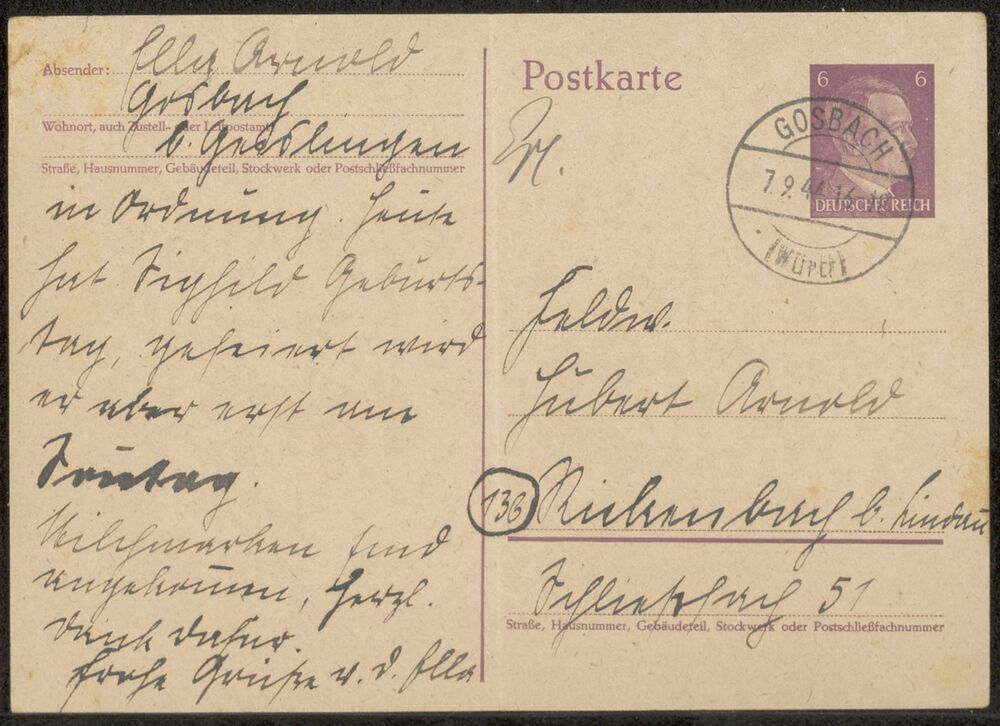 Absender: Ella Arnold
Gosbach
Wohnort, auch Zustell- oder Leitpostamt
b. Geislingen
Straße, Hausnummer, Gebäudeteil, Stockwerk oder Postschließfachnummer
in Ordnung. Heute
hat Sighild Geburts-
tag, gefeiert wird
er aber erst am
Sonntag.
Milchmarken sind
angekommen, Herzl.
Dank dafür.
Frohe Grüße v. d. Ella
Postkarte
6 6
DEUTSCHES REICH
GOSBACH
7.9.44.16
(Württ)
Feldw.
Hubert Arnold
(13b) Rickenbach b. Lindau
Schließfach 51
Straße, Hausnummer, Gebäudeteil, Stockwerk oder Postschließfachnummer